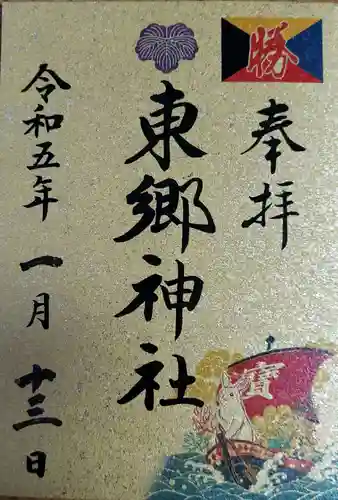 勝
奉拝
東郷神社
令和五年 一月 十三日
寶